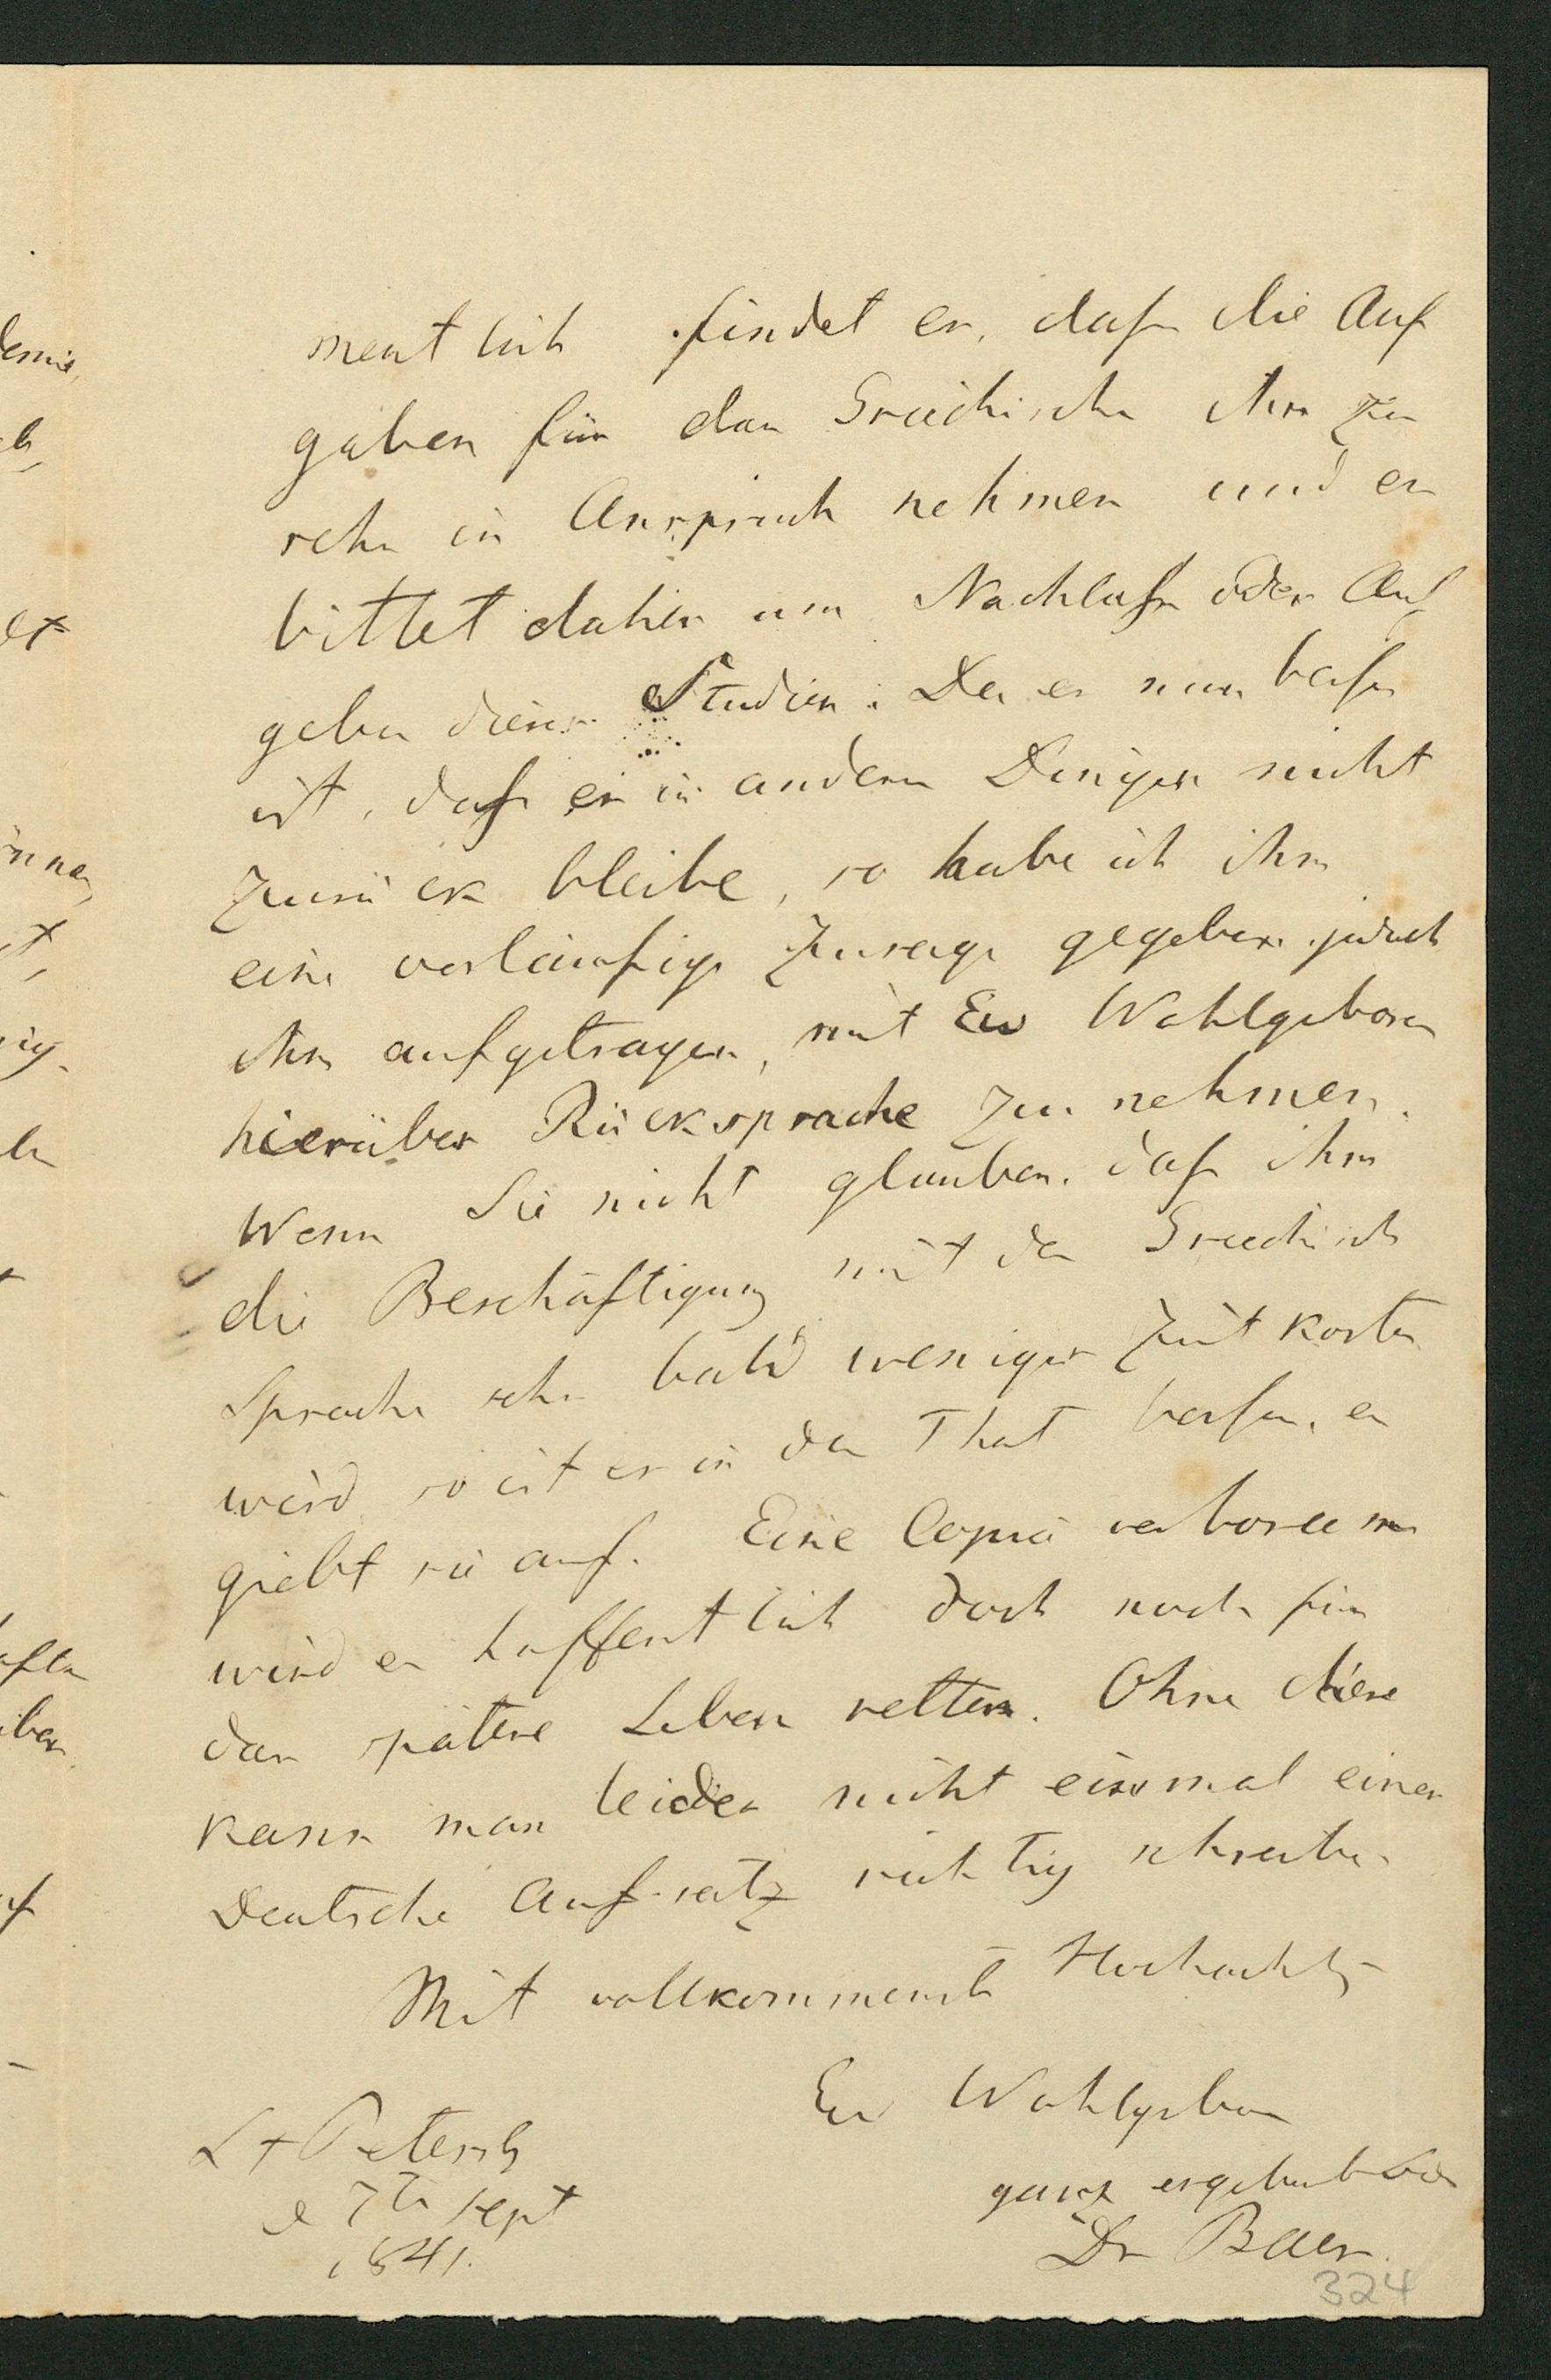 mentlich findet er, daß die Auf
gaben für das Griechische ihn zu
sehr in Anspruch nehmen und er
bittet daher um Nachlaß oder Auf
geben dieser Studien. Da er nun besser
ist, daß er in andern Dingen nicht
zurück bleibe, so habe ich ihm
eine vorläufige Zusage gegeben, jedoch
ihm aufgetragen, mit Ew Wohlgeboren
hierüber Rücksprache zu nehmen.
Wenn Sie nicht glauben, daß ihm
die Beschäftigung mit der Griechisch
Sprache sehr bald weniger Zeit kosten
wird, so ist es in der That besser, er
giebt sie auf. Eine Copia verborum
wird er hoffentlich doch noch für
das spätere Leben retten. Ohne diese
kann man leider nicht einmal einen
Deutschen Aufsatz richtig schreiben
Mit vollkommenster Hochachtg
Ew Wohlgeboren
ganz ergebenster
Dr Baer.
St Petersb
d 7ten Sept
1841.
324